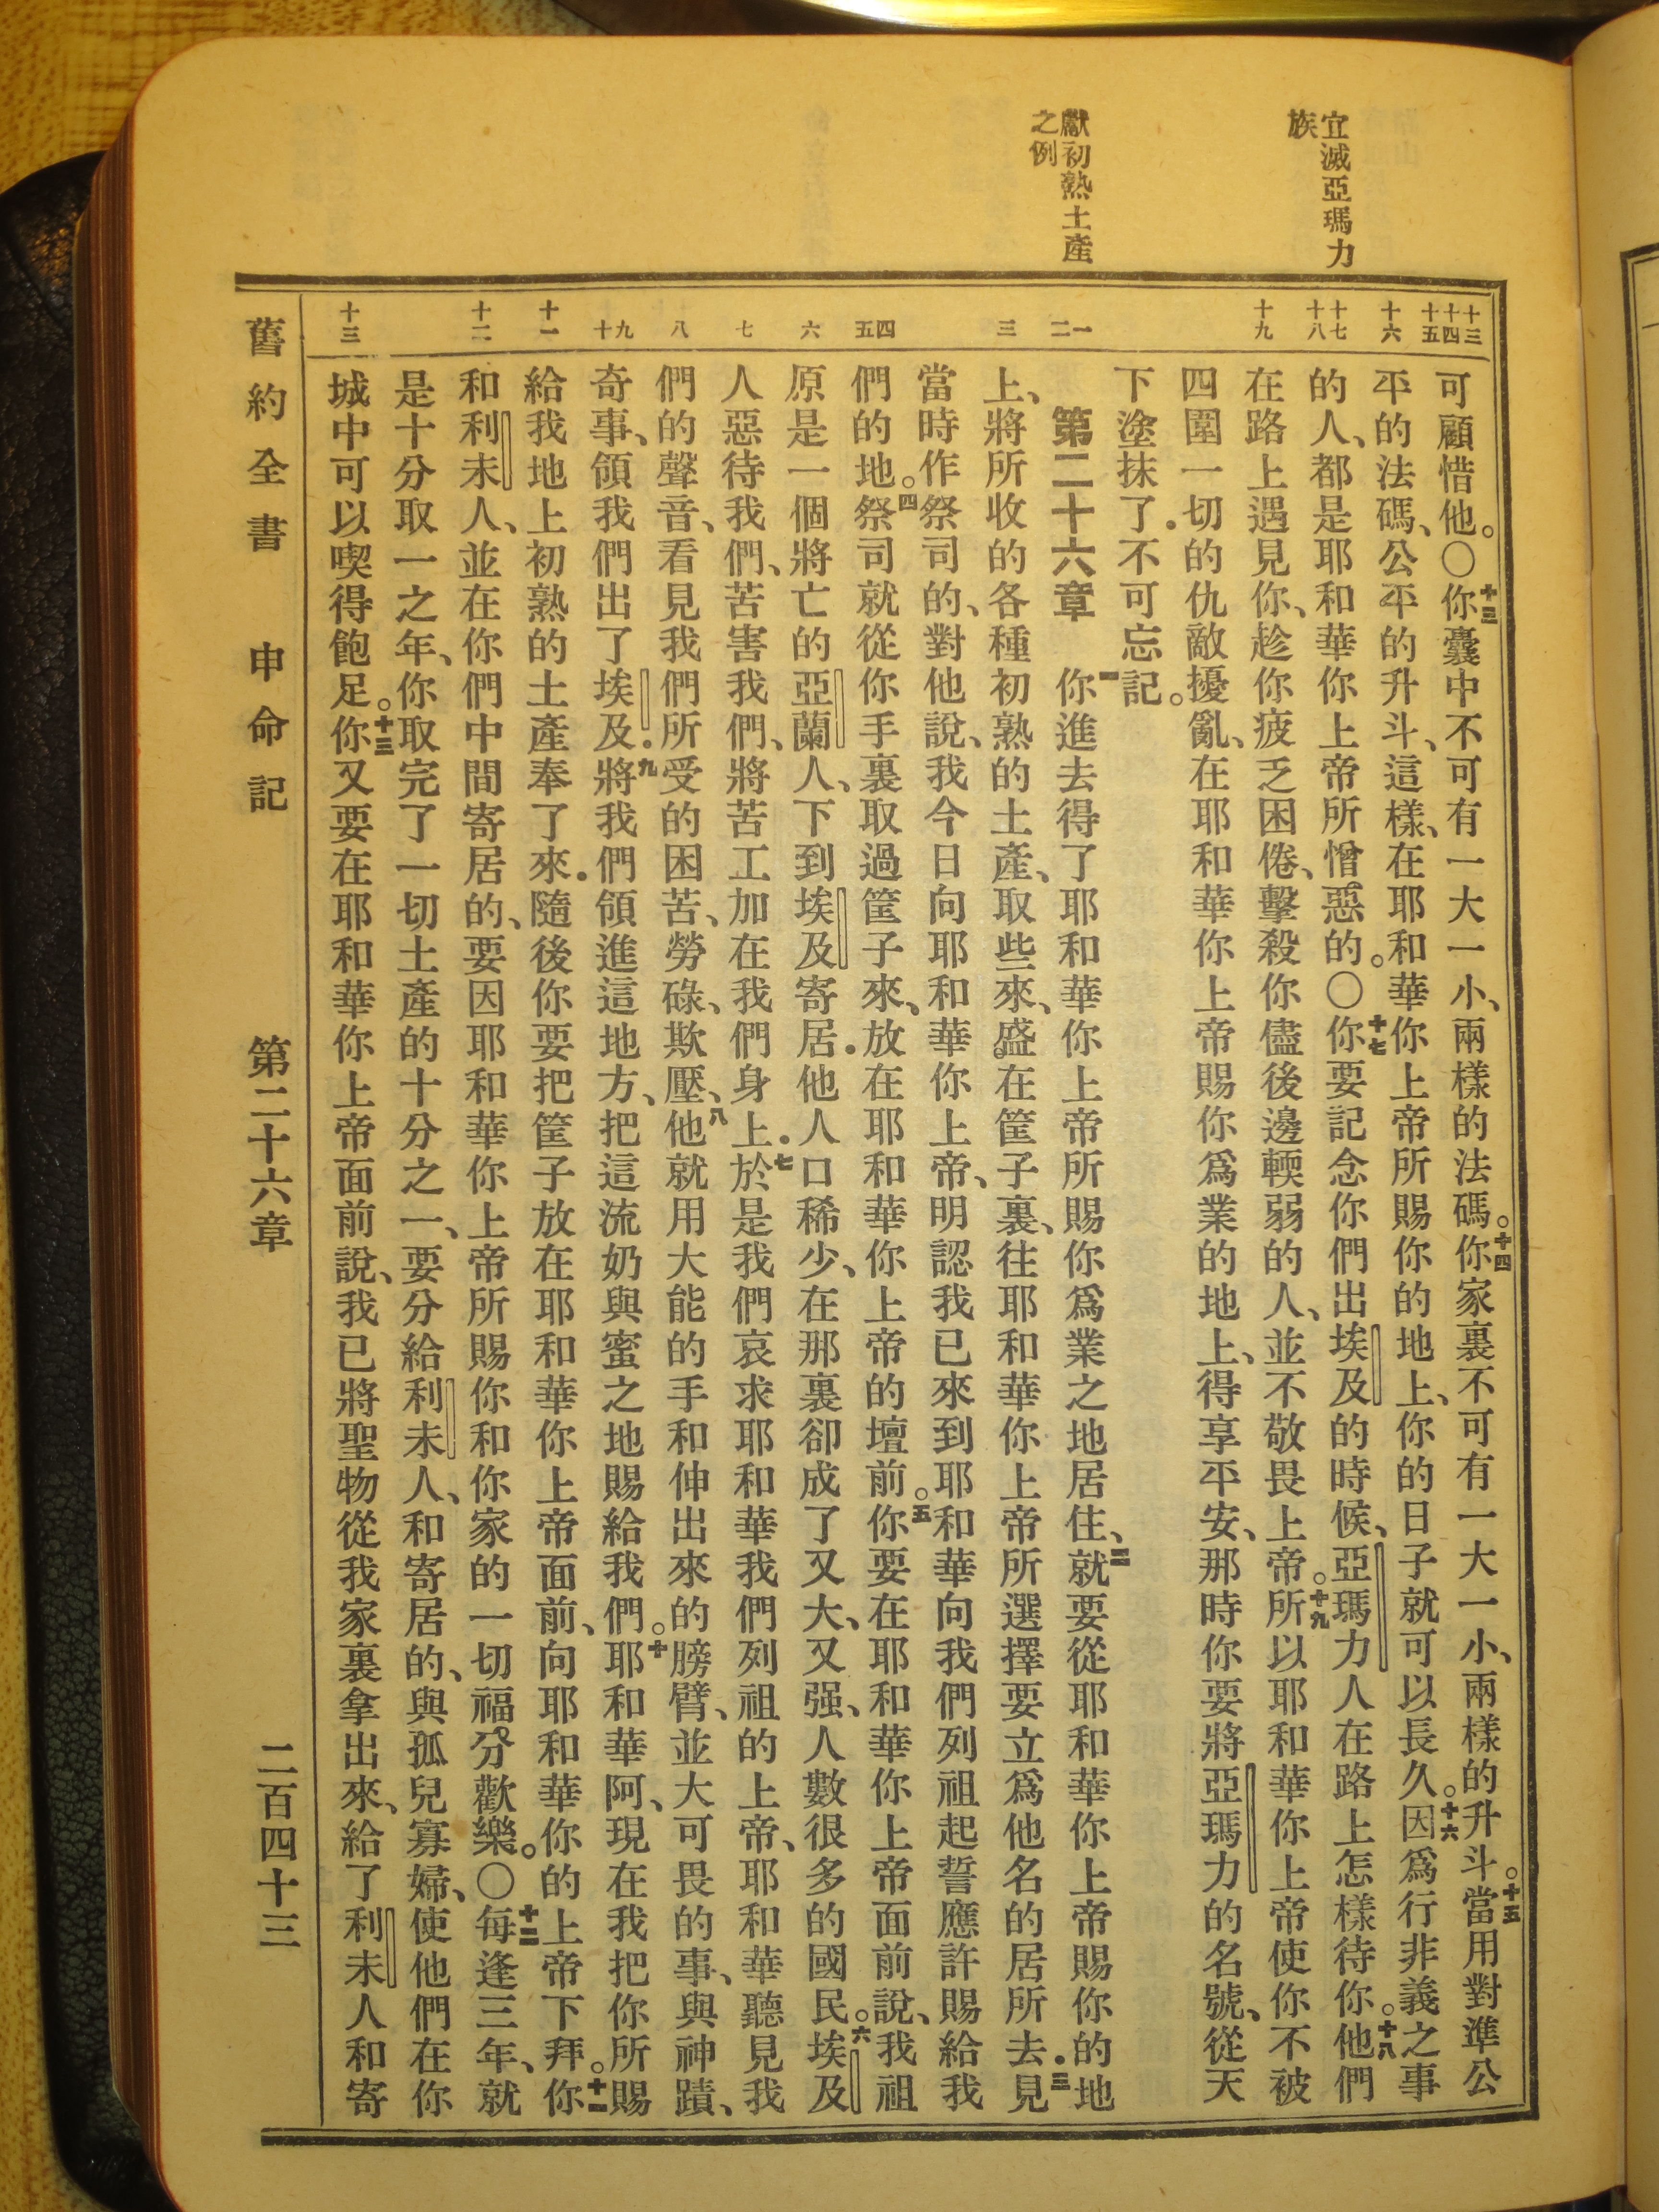 宜滅亞瑪力
族
獻初熟土產
之例
十三
十四
十五
十六
十七
十八
十九
一
二
三
四
五
六
七
八
九
十
十一
十二
十三
可顧惜他。〇十三你囊中不可有一大一小、兩樣的法碼。十四你家裏不可有一大一小、兩樣的升斗。十五當用對準公
平的法碼、公平的升斗、這樣、在耶和華你上帝所賜你的地上、你的日子就可以長久。十六因爲行非義之事
的人、都是耶和華你上帝所憎惡的。〇十七你要記念你們出埃及的時候、亞瑪力人在路上怎樣待你。十八他們
在路上遇見你、趁你疲乏困倦、擊殺你儘後邊輭弱的人、並不敬畏上帝。十九所以耶和華你上帝使你不被
四圍一切的仇敵擾亂、在耶和華你上帝賜你爲業的地上、得享平安、那時你要將亞瑪力的名號、從天
下塗抹了．不可忘記。
第二十六章 一你進去得了耶和華你上帝所賜你爲業之地居住、二就要從耶和華你上帝賜你的地
上、將所收的各種初熟的土產、取些來、盛在筐子裏、往耶和華你上帝所選擇要立爲他名的居所去．三見
當時作祭司的、對他說、我今日向耶和華你上帝、明認我已來到耶和華向我們列祖起誓應許賜給我
們的地。四祭司就從你手裏取過筐子來、放在耶和華你上帝的壇前。五你要在耶和華你上帝面前說、我祖
原是一個將亡的亞蘭人、下到埃及寄居．他人口稀少、在那裏卻成了又大、又强、人數很多的國民。六埃及
人惡待我們、苦害我們、將苦工加在我們身上．七於是我們哀求耶和華我們列祖的上帝、耶和華聽見我
們的聲音、看見我們所受的困苦、勞碌、欺壓、八他就用大能的手和伸出來的膀臂、並大可畏的事、與神蹟、
奇事、領我們出了埃及．九將我們領進這地方、把這流奶與蜜之地賜給我們。十耶和華阿、現在我把你所賜
給我地上初熟的土產奉了來．隨後你要把筐子放在耶和華你上帝面前、向耶和華你的上帝下拜。十一你
和利未人、並在你們中間寄居的、要因耶和華你上帝所賜你和你家的一切福分歡樂。〇十二每逢三年、就
是十分取一之年、你取完了一切土產的十分之一、要分給利未人、和寄居的、與孤兒寡婦、使他們在你
城中可以喫得飽足。十三你又要在耶和華你上帝面前說、我已將聖物從我家裏拿出來、給了利未人和寄
舊約全書 申命記 第二十六章 二百四十三